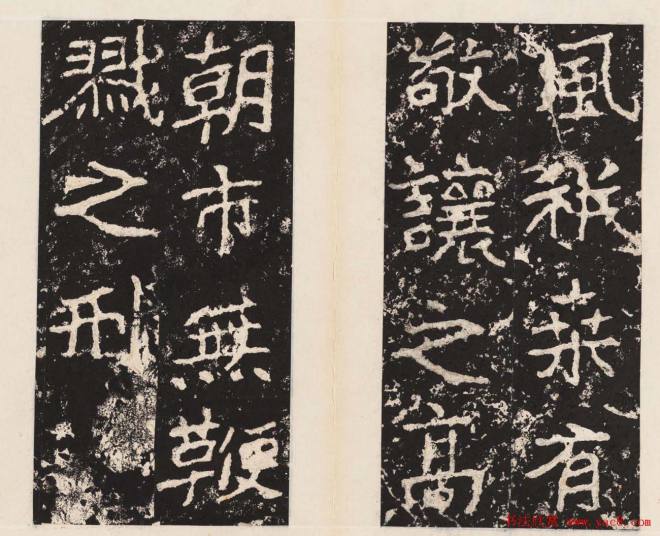 風祇桒有
敬讓之高
朝市無鞭
戮之刑
书法欣赏 www.yac8.com